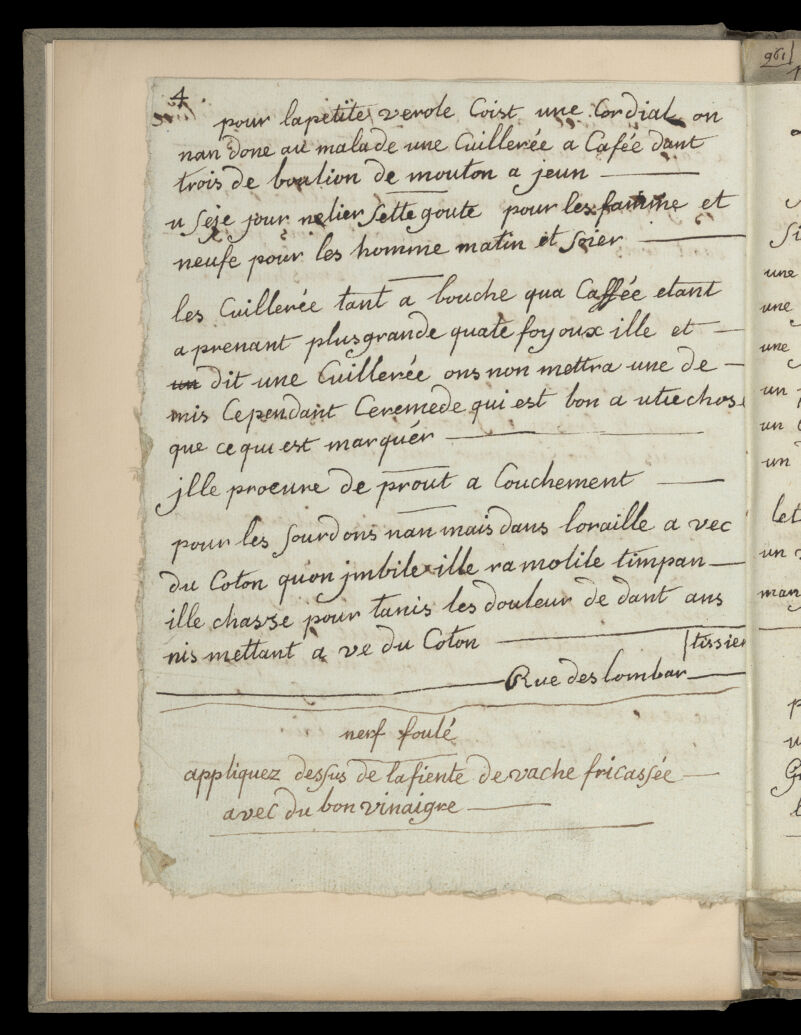 4
pour lapetite verole Coist une Cordial on
nan done au malade une Cuillerée a Cafée dant
trois de boulion de mouton a jeun
u seje jour nelier sette goute pour les famme et
neufe pour les homme matin et soier
les Cuillerée tant a bouche qua Caffée etant
a prenant plusgrande quate foy oux ille et
un dit une Cuillerée ons non mettra une de
mis Cependant Ceremede qui est bon a utre chose
que ce qui est marquér
jlle procure de prout a Couchement
pour les sourdons nan mais dans loraille a vec
du Coton quon jmbile ille ramolile timpan
ille chasse pour tanis les douleur de dant ans
nis mettant a ve du Coton
tissier
Rue des lombar
nerf foulé
appliquez dessus de lafiente de vache fricassée
avec du bon vinaigre
961
si
une
une
une
un
un
un
let
un
man